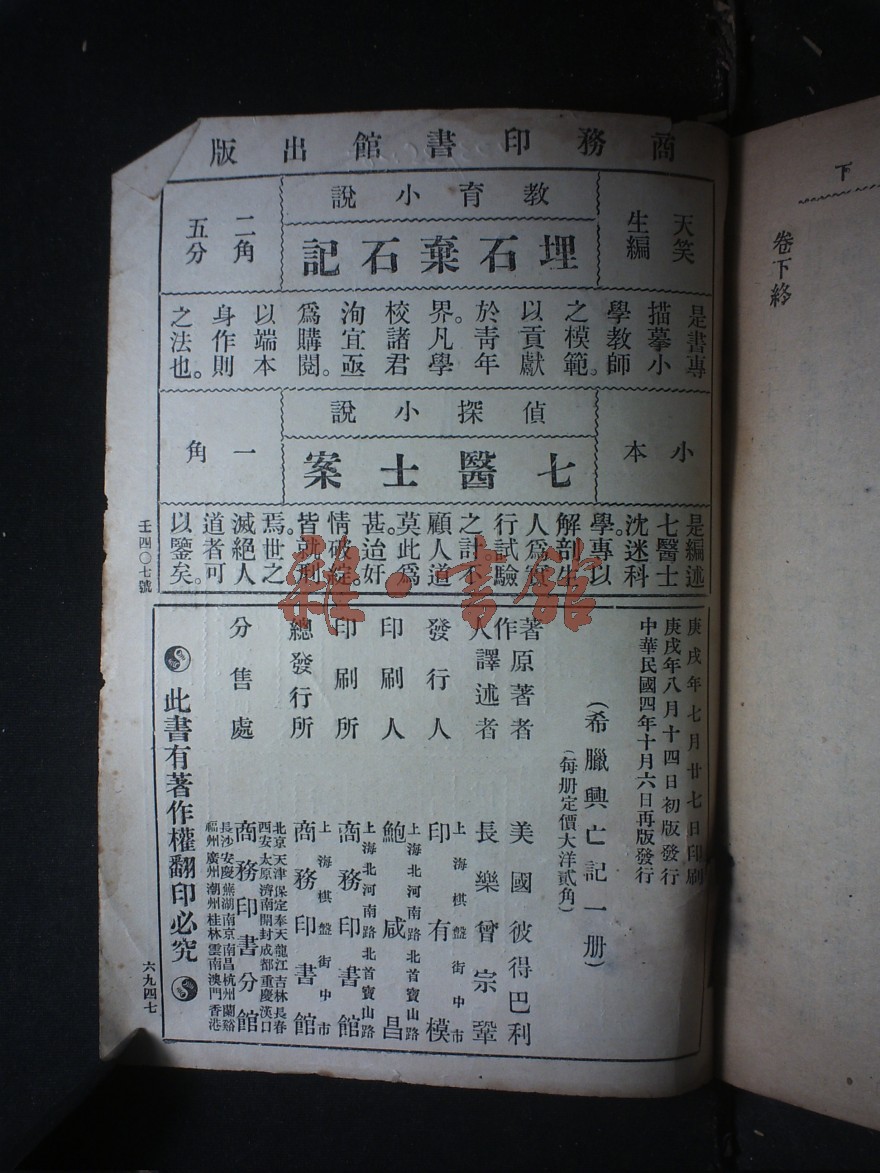 商務印書館出版
天笑
生編
教育小說
埋石棄石記
二角
五分
是書專
描摹小
學教師
之模範。
以貢獻
於青年
界。凡學
校諸君
洵宜亟
爲購閱。
以端本
身作則
之法也。
小本
偵探小說
七醫士案
一角
是編述
七醫士
沈迷科
學。專以
解剖生
人爲實
行試驗
之計。不
顧人道
莫此爲
甚。迨奸
情破綻。
皆就刑
焉。世之
滅絕人
道者可
以鑒矣。
壬四〇七號
庚戌年七月廿七日印刷
庚戌年八月十四日初版發行
中華民國四年十月六日再版發行
(希臘興亡記一册)
(每册定價大洋貳角)
著作人
原著者 美國彼得巴利
譯述者 長樂曾宗鞏
發行人 印有模
上海棋盤街中市
印刷人 鮑咸昌
上海北河南路北首寶山路
印刷所 商務印書館
上海北河南路北首寶山路
總發行所 商務印書館
上海棋盤街中市
分售處 商務印書分館
北京天津保定奉天龍江吉林長春
西安太原濟南開封成都重慶漢口
長沙安慶蕪湖南京南昌杭州蘭谿
福州廣州潮州桂林雲南澳門香港
此書有著作權翻印必究
六九四七
下
卷下終
雜·書館